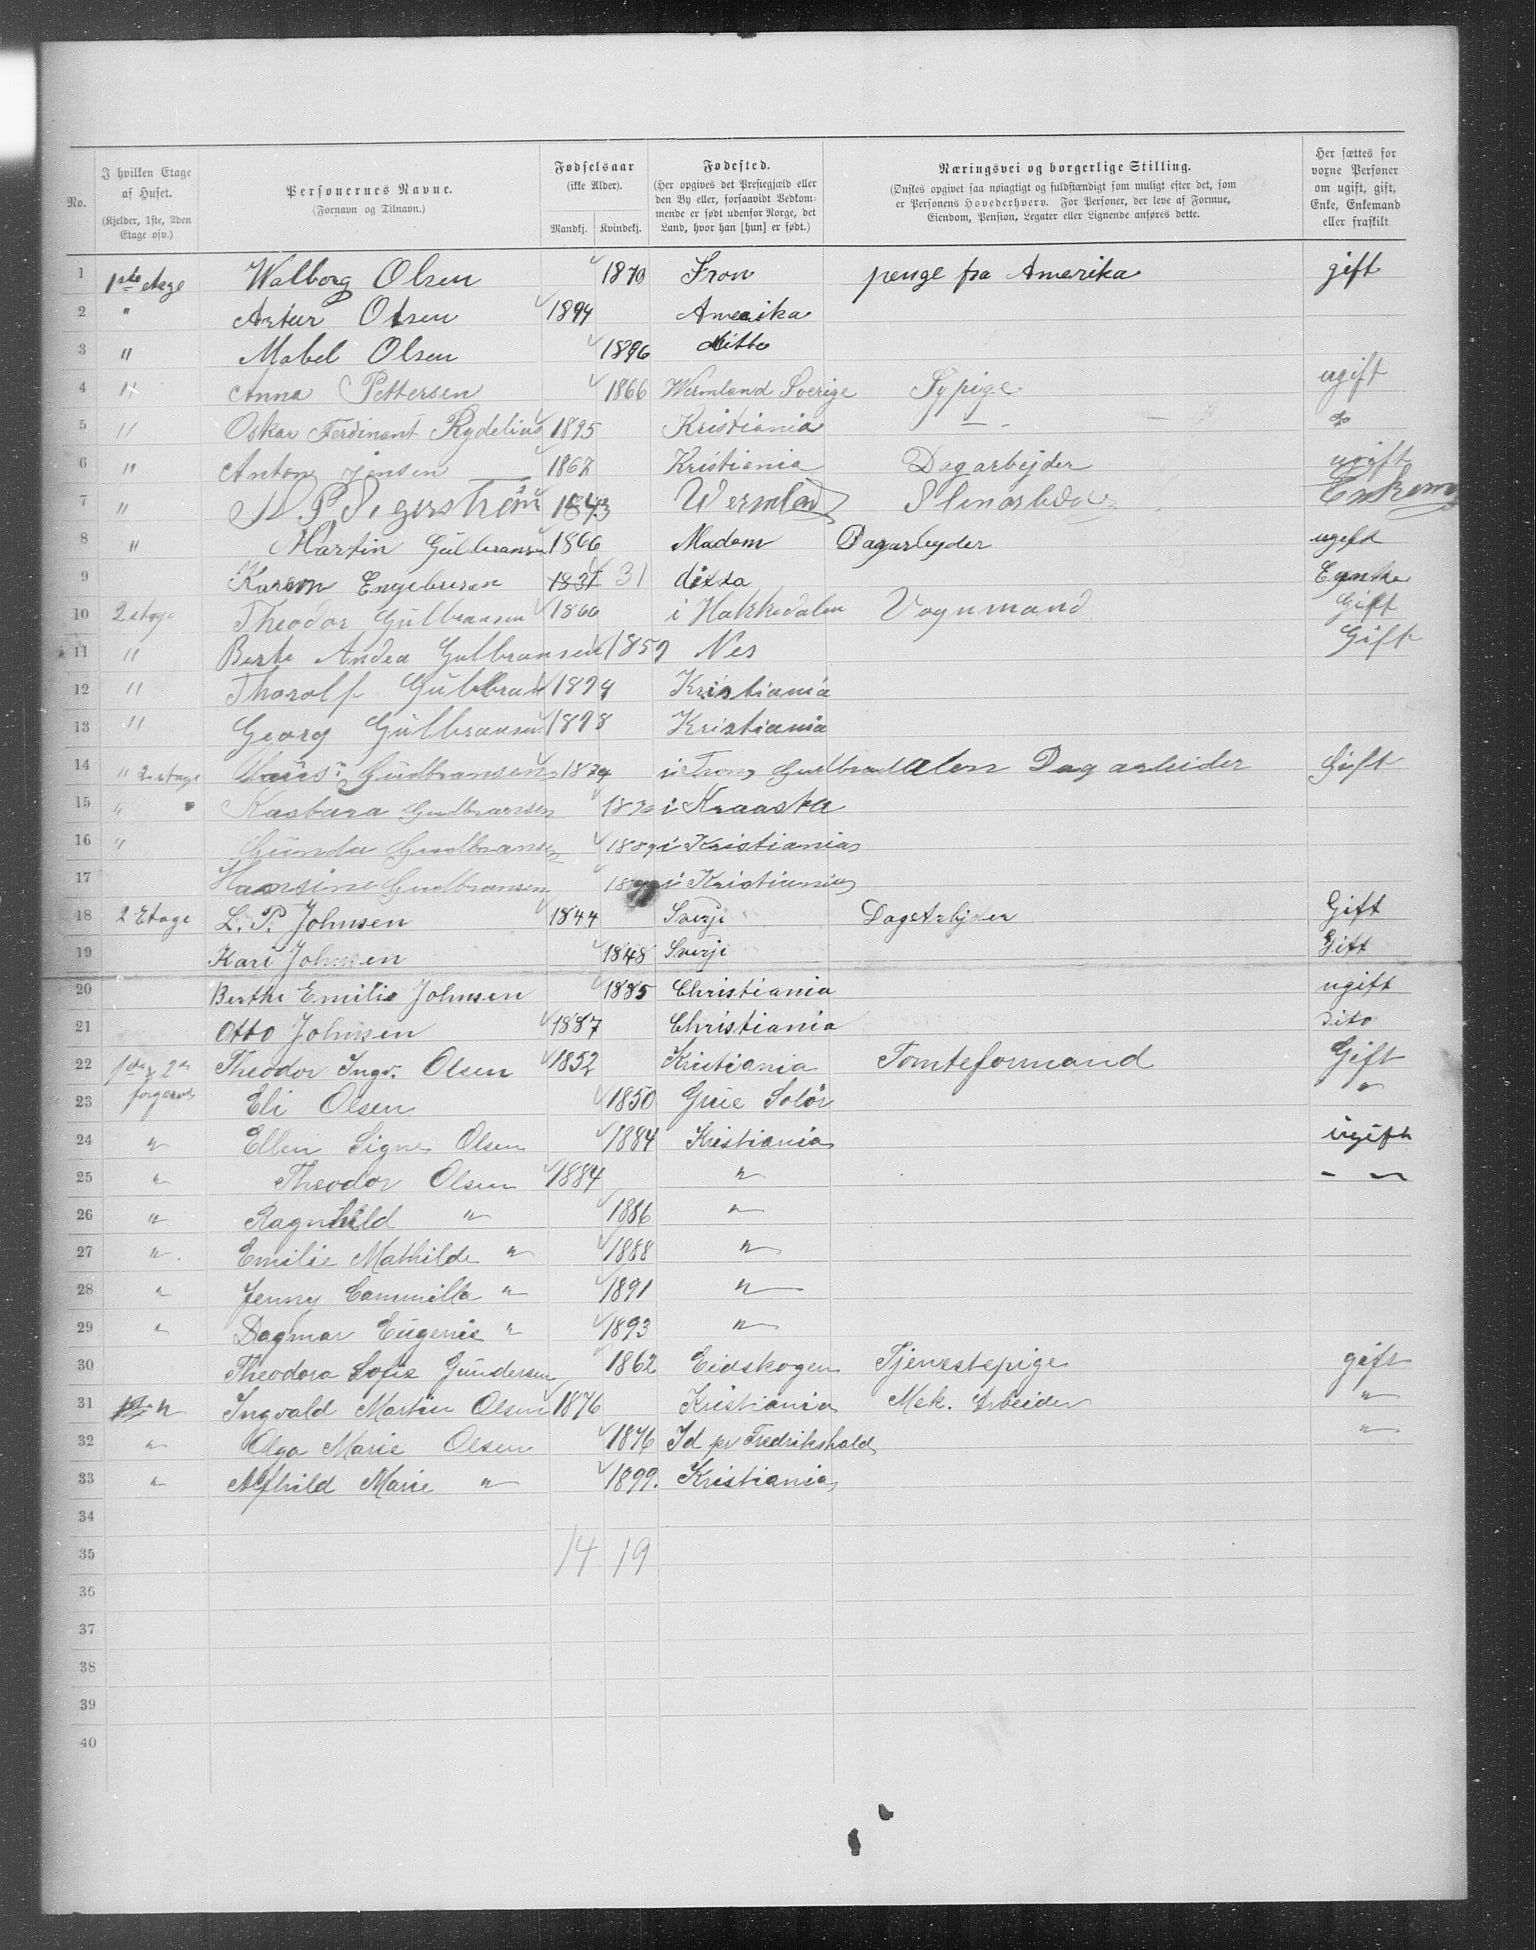 No.
I hvilken Etage af Huset. (Kjelder, 1ste, 2den Etage osv.)
Personernes Navne. (Fornavn og Tilnavn.)
Fødselsaar (ikke Alder). Mandkj. Kvindekj.
Fødested. (Her opgives det Prestegjæld eller den By eller, forsaavidt Vedkommende er født udenfor Norge, det Land, hvor han [hun] er født.)
Næringsvei og borgerlige Stilling. (Ønskes opgivet saa nøiagtigt og fuldstændigt som muligt efter det, som er Personens Hovederhverv. For Personer, der leve af Formue, Eiendom, Pension, Legater eller Lignende anføres dette.
Her sættes for voxne Personer om ugift, gift, Enke, Enkemand eller fraskilt
1 1ste etage Walborg Olsen 1870 Fron penge fra Amerika gift
2 " Artur Olsen 1894 Amerika
3 " Mabel Olsen 1896 ditto
4 " Anna Pettersen 1866 Wermland Sverige Sypige ugift
5 " Oskar Ferdinant Rydelius 1895 Kristiania —
6 " Anton Jensen 1867 Kristiania Dagarbejder ugift
7 " P Segerström 1843 Wermland Enkem
8 " Martin Gulbransen 1866 Dagarbyder ugift
9 Karen Engebresen 1831 31 ditto
10 2 etage Theodor Gulbransen 1860 i Hakkedalen Vognmand Gift
11 " Berte Andea Gulbransen 1859 Nes Gift
12 " Thorolf Gulbran 1894 Kristiania
13 " Georg Gulbransen 1898 Kristiania
14 " 2 etage Gudbransen 1874 i Fron Gudbrandalen Dagarbeider Gift
15 " Kasbara Gudbransen i Kraaska
16 " Gunda Gudbransen i Kristiania
17 Hansine Gudbransen i Kristiania
18 2 Etage L. P. Johnsen 1844 Sverje DageArbjder Gift
19 Kari Johnsen 1848 Sverje Gift
20 Berthe Emilie Johnsen 1885 Christiania ugift
21 Otto Johnsen 1887 Christiania dito
22 1ste & 2den Theodor Ingv. Olsen 1852 Kristiania Tomteformand Gift
23 forgaard Eli Olsen 1850 Grue Solör "
24 " Ellen Signe Olsen 1884 Kristiania ugift
25 " Theodor Olsen 1884 " - "
26 " Ragnhild " 1886 "
27 " Emilie Mathilde " 1888 "
28 " Jenny Cammilla " 1891 "
29 " Dagmar Eugenie " 1893 "
30 Theodora Sofie Gundersen 1862 Eidskogen Tjenestepige gift
31 " Ingvald Martin Olsen 1876 Kristiania Mek. Arbeider "
32 " Olga Marie Olsen 1876 Id pr Fredrikshald "
33 " Alfhild Marie " 1899. Kristiania
34
35 14 19
36
37
38
39
40